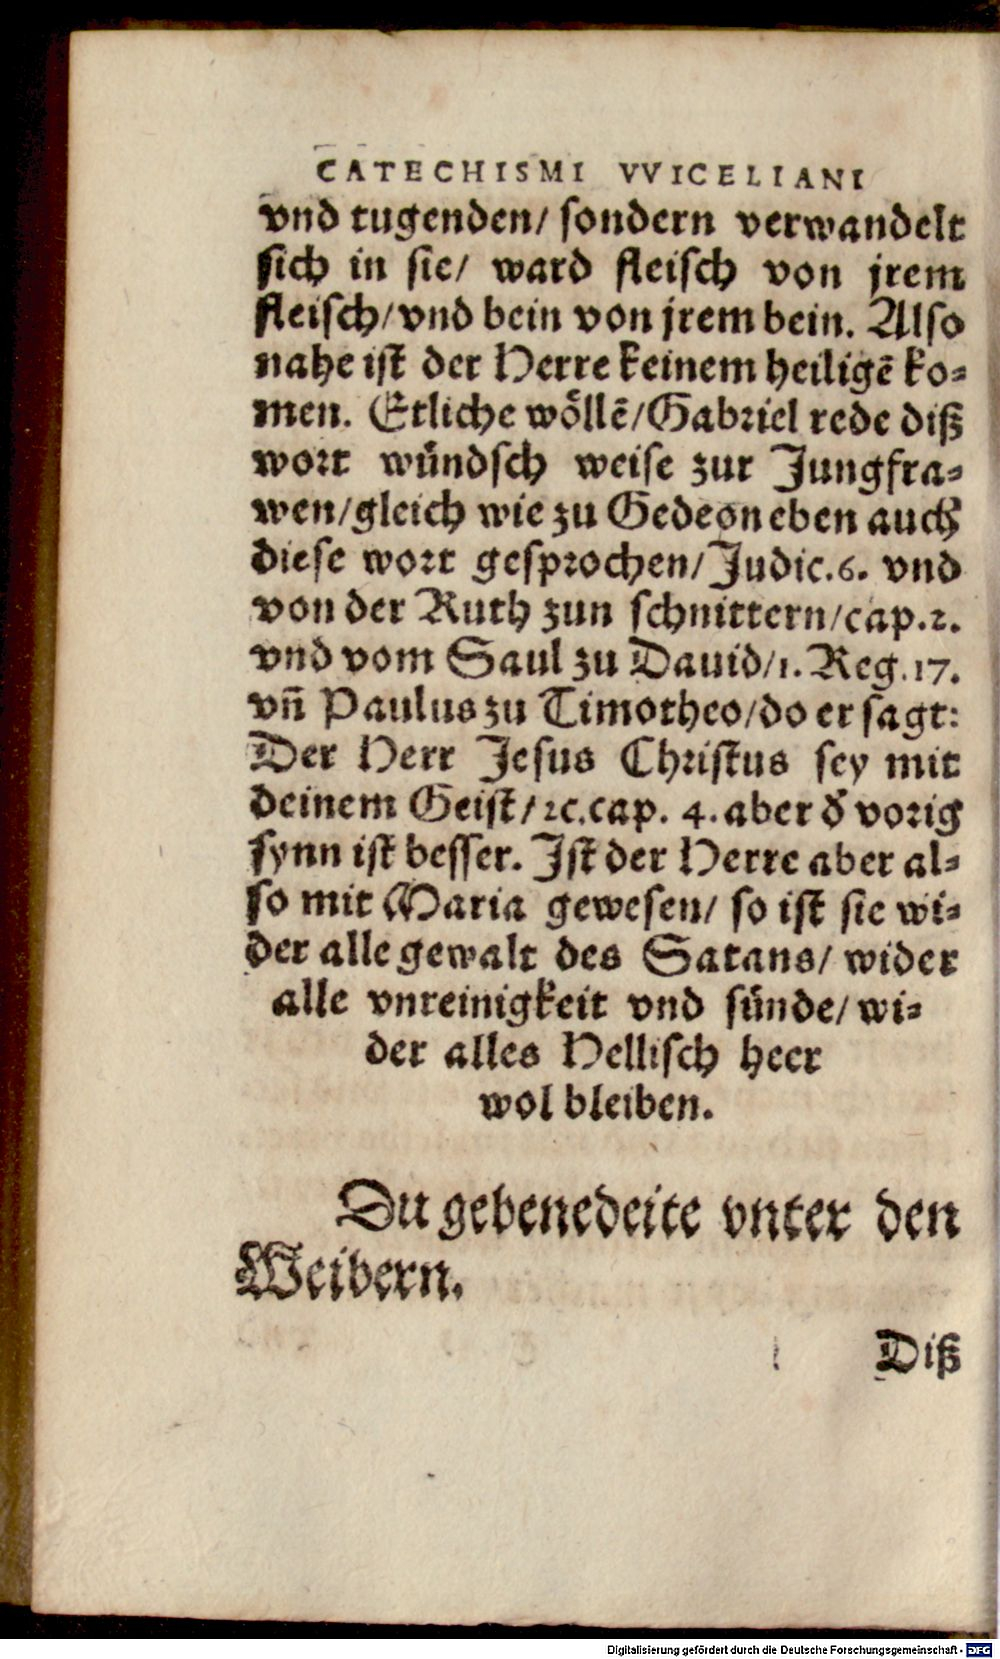 CATECHISMI VVICELIANI
vnd tugenden/ sondern verwandelt
sich in sie/ ward fleisch von jrem
fleisch/vnd bein von jrem bein. Also
nahe ist der Herre keinem heiligē ko⸗
men. Etliche wöllē/Gabriel rede diß
wort wündsch weise zur Jungfra⸗
wen/gleich wie zu Gedeon eben auch
diese wort gesprochen/Judic.6. vnd
von der Ruth zun schnittern/cap.2.
vnd vom Saul zu Dauid/1. Reg.17.
vñ Paulus zu Timotheo/do er sagt:
Der Herr Jesus Christus sey mit
deinem Geist/ꝛc.cap. 4. aber d̕ vorig
synn ist besser. Jst der Herre aber al⸗
so mit Maria gewesen/ so ist sie wi⸗
der alle gewalt des Satans/ wider
alle vnreinigkeit vnd sünde/ wi⸗
der alles Hellisch heer
wol bleiben.
Du gebenedeite vnter den
Weibern.
Diß
Digitalisierung gefördert durch die Deutsche Forschungsgemeinschaft - DFG